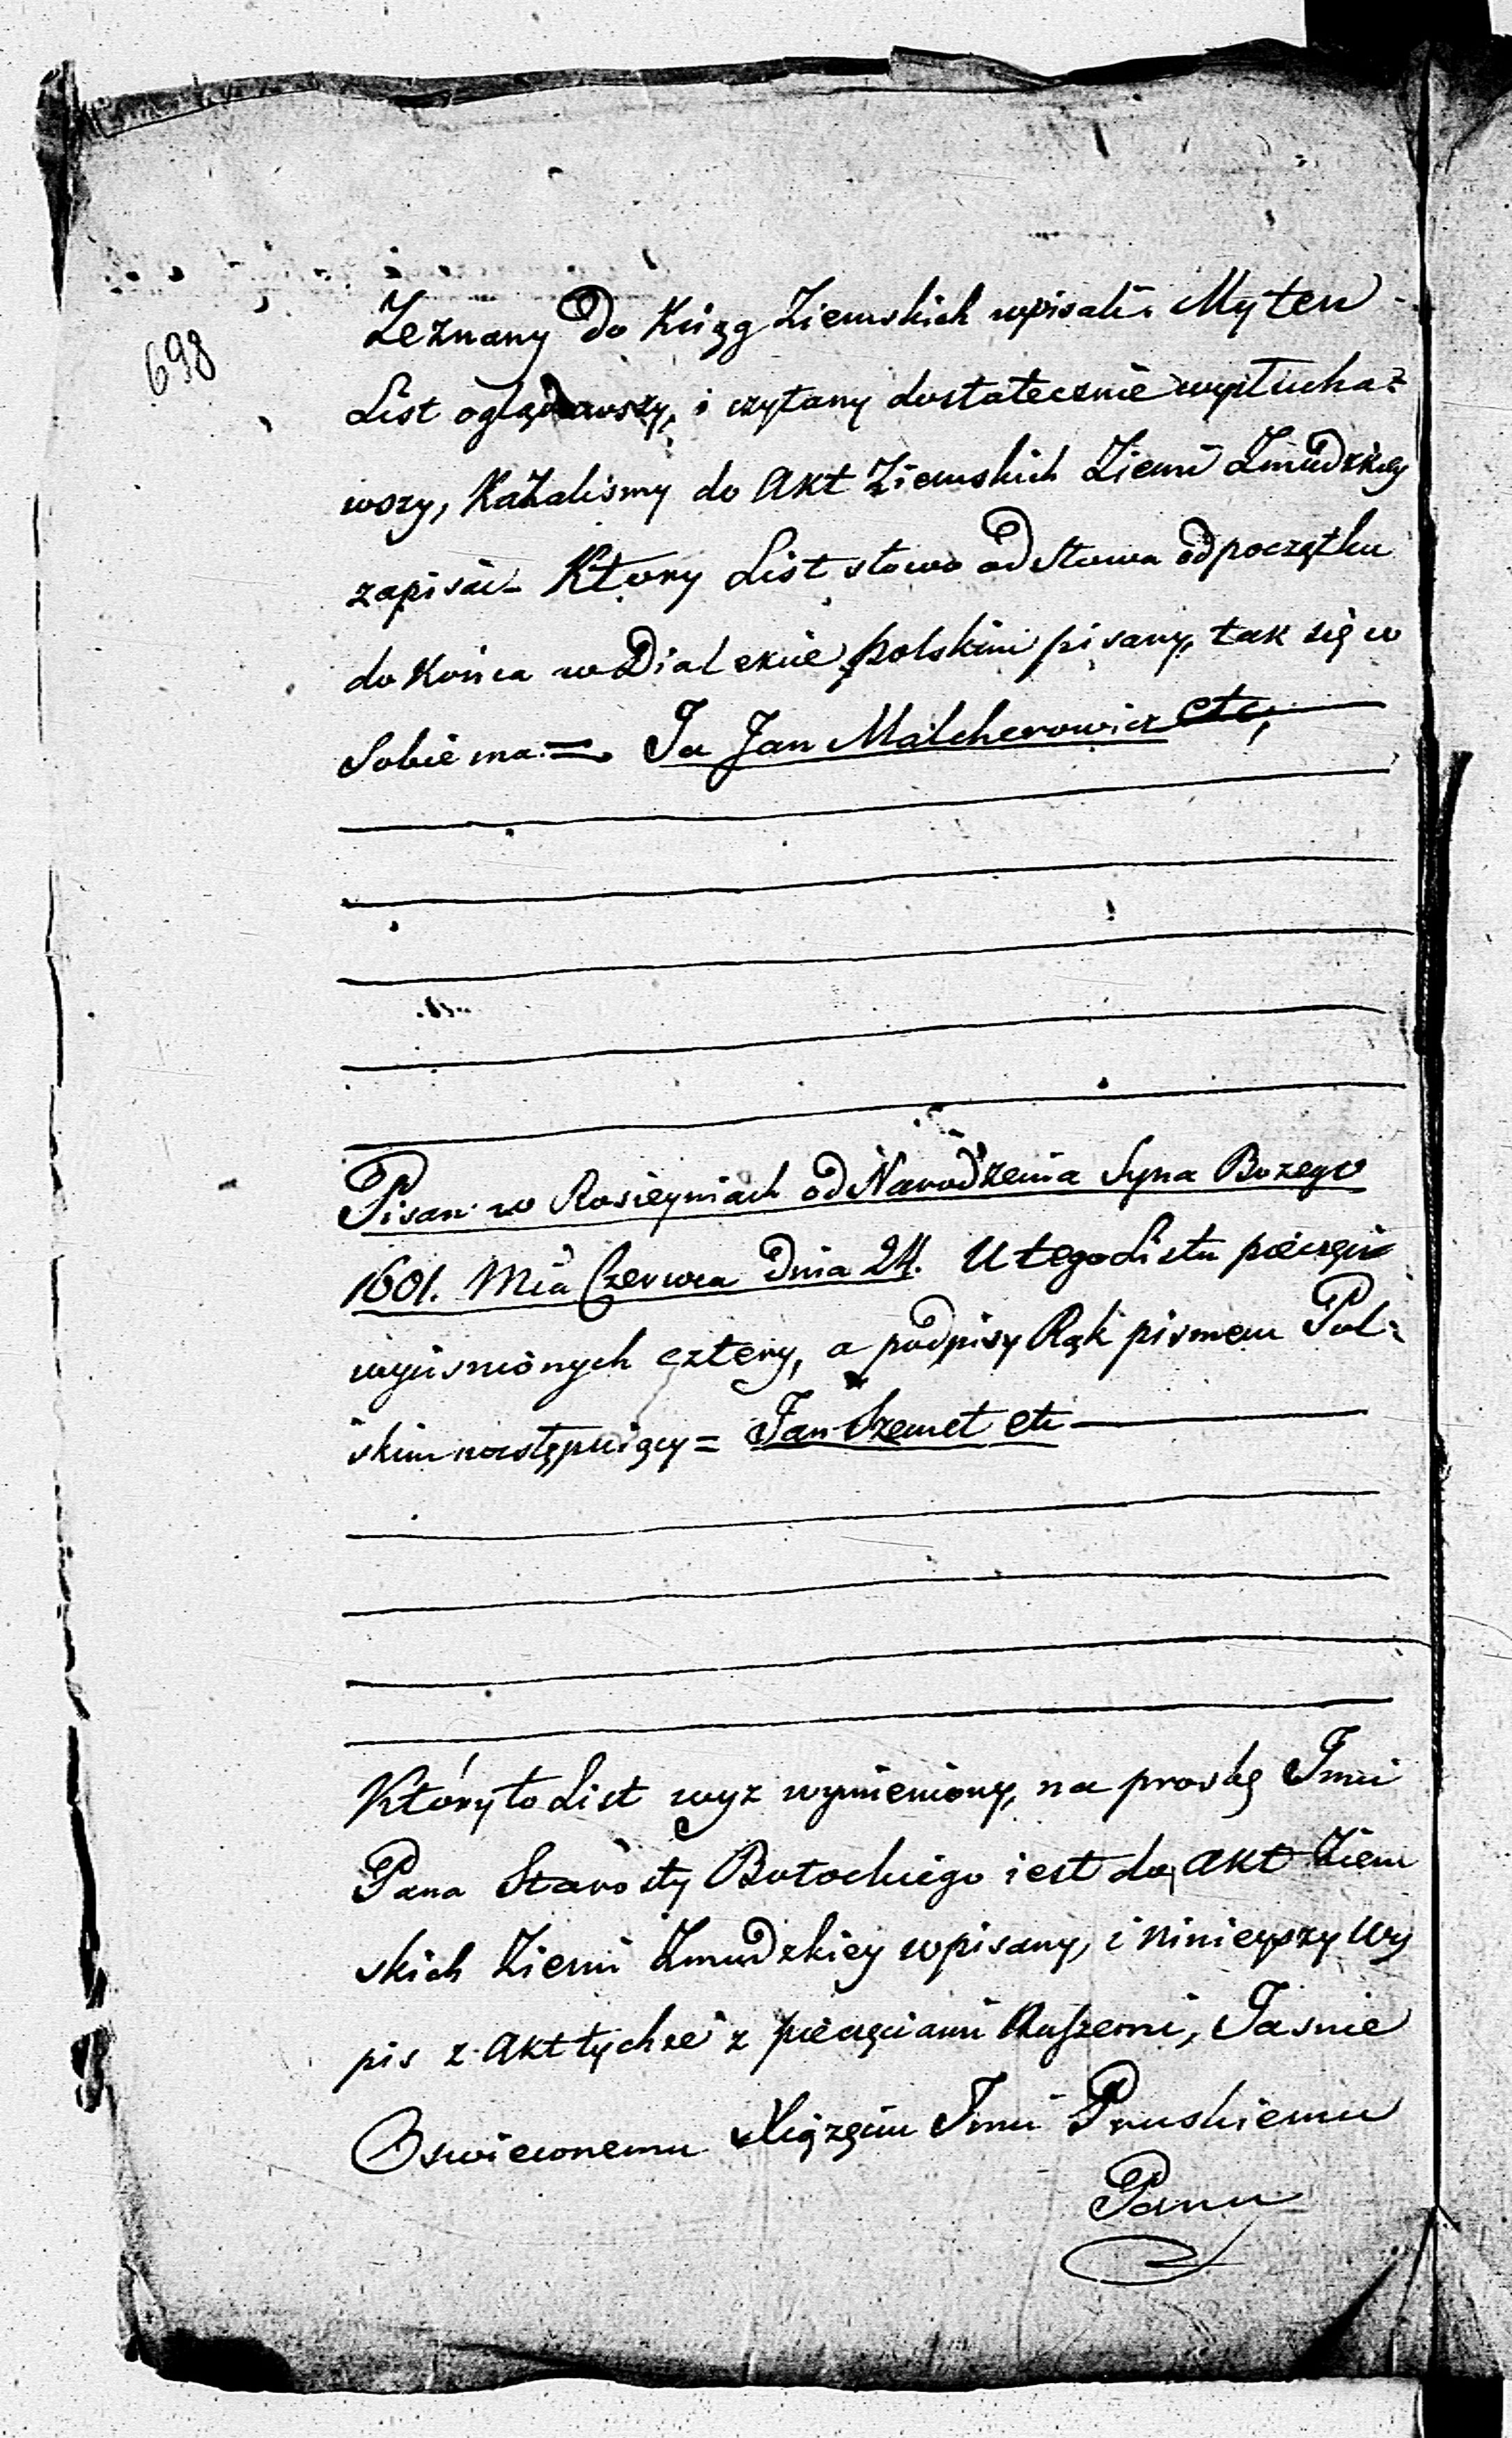 698
Zeznany do Xiąg Ziemskich wpisali. My ten
List oglądawszy, i czytany dostatecznie wysłucha=
wszy, Kazalismy do Akt Ziemskich Ziemi Zmudzkiey
zapisać. Ktory List słowo od słowa od początku
do Konca w Dialekcie polskim pisany, tak się w
Sobie ma = Ja Jan Malcherowicz etc,
Pisan w Rosieyniach od Narodzenia Syna Bozego
1601. Mca Czerwca Dnia 24. U tego Listu pieczęci
wycisnionych cztery, a podpisy Rąk pismem Pol=
skim następuiący = Jan Szemet etc
Który to List wyz wymieniony, na prosbę Jmci
Pana Starosty Botockiego iest do Akt Ziem
skich Ziemi Zmudzkiey wpisany, i ninieyszy Wy
pis z Akt tychże z pieczęciami Naszemi, Jasnie
Oswieconemu Xiązęciu Jmci Pruskiemu
Panu